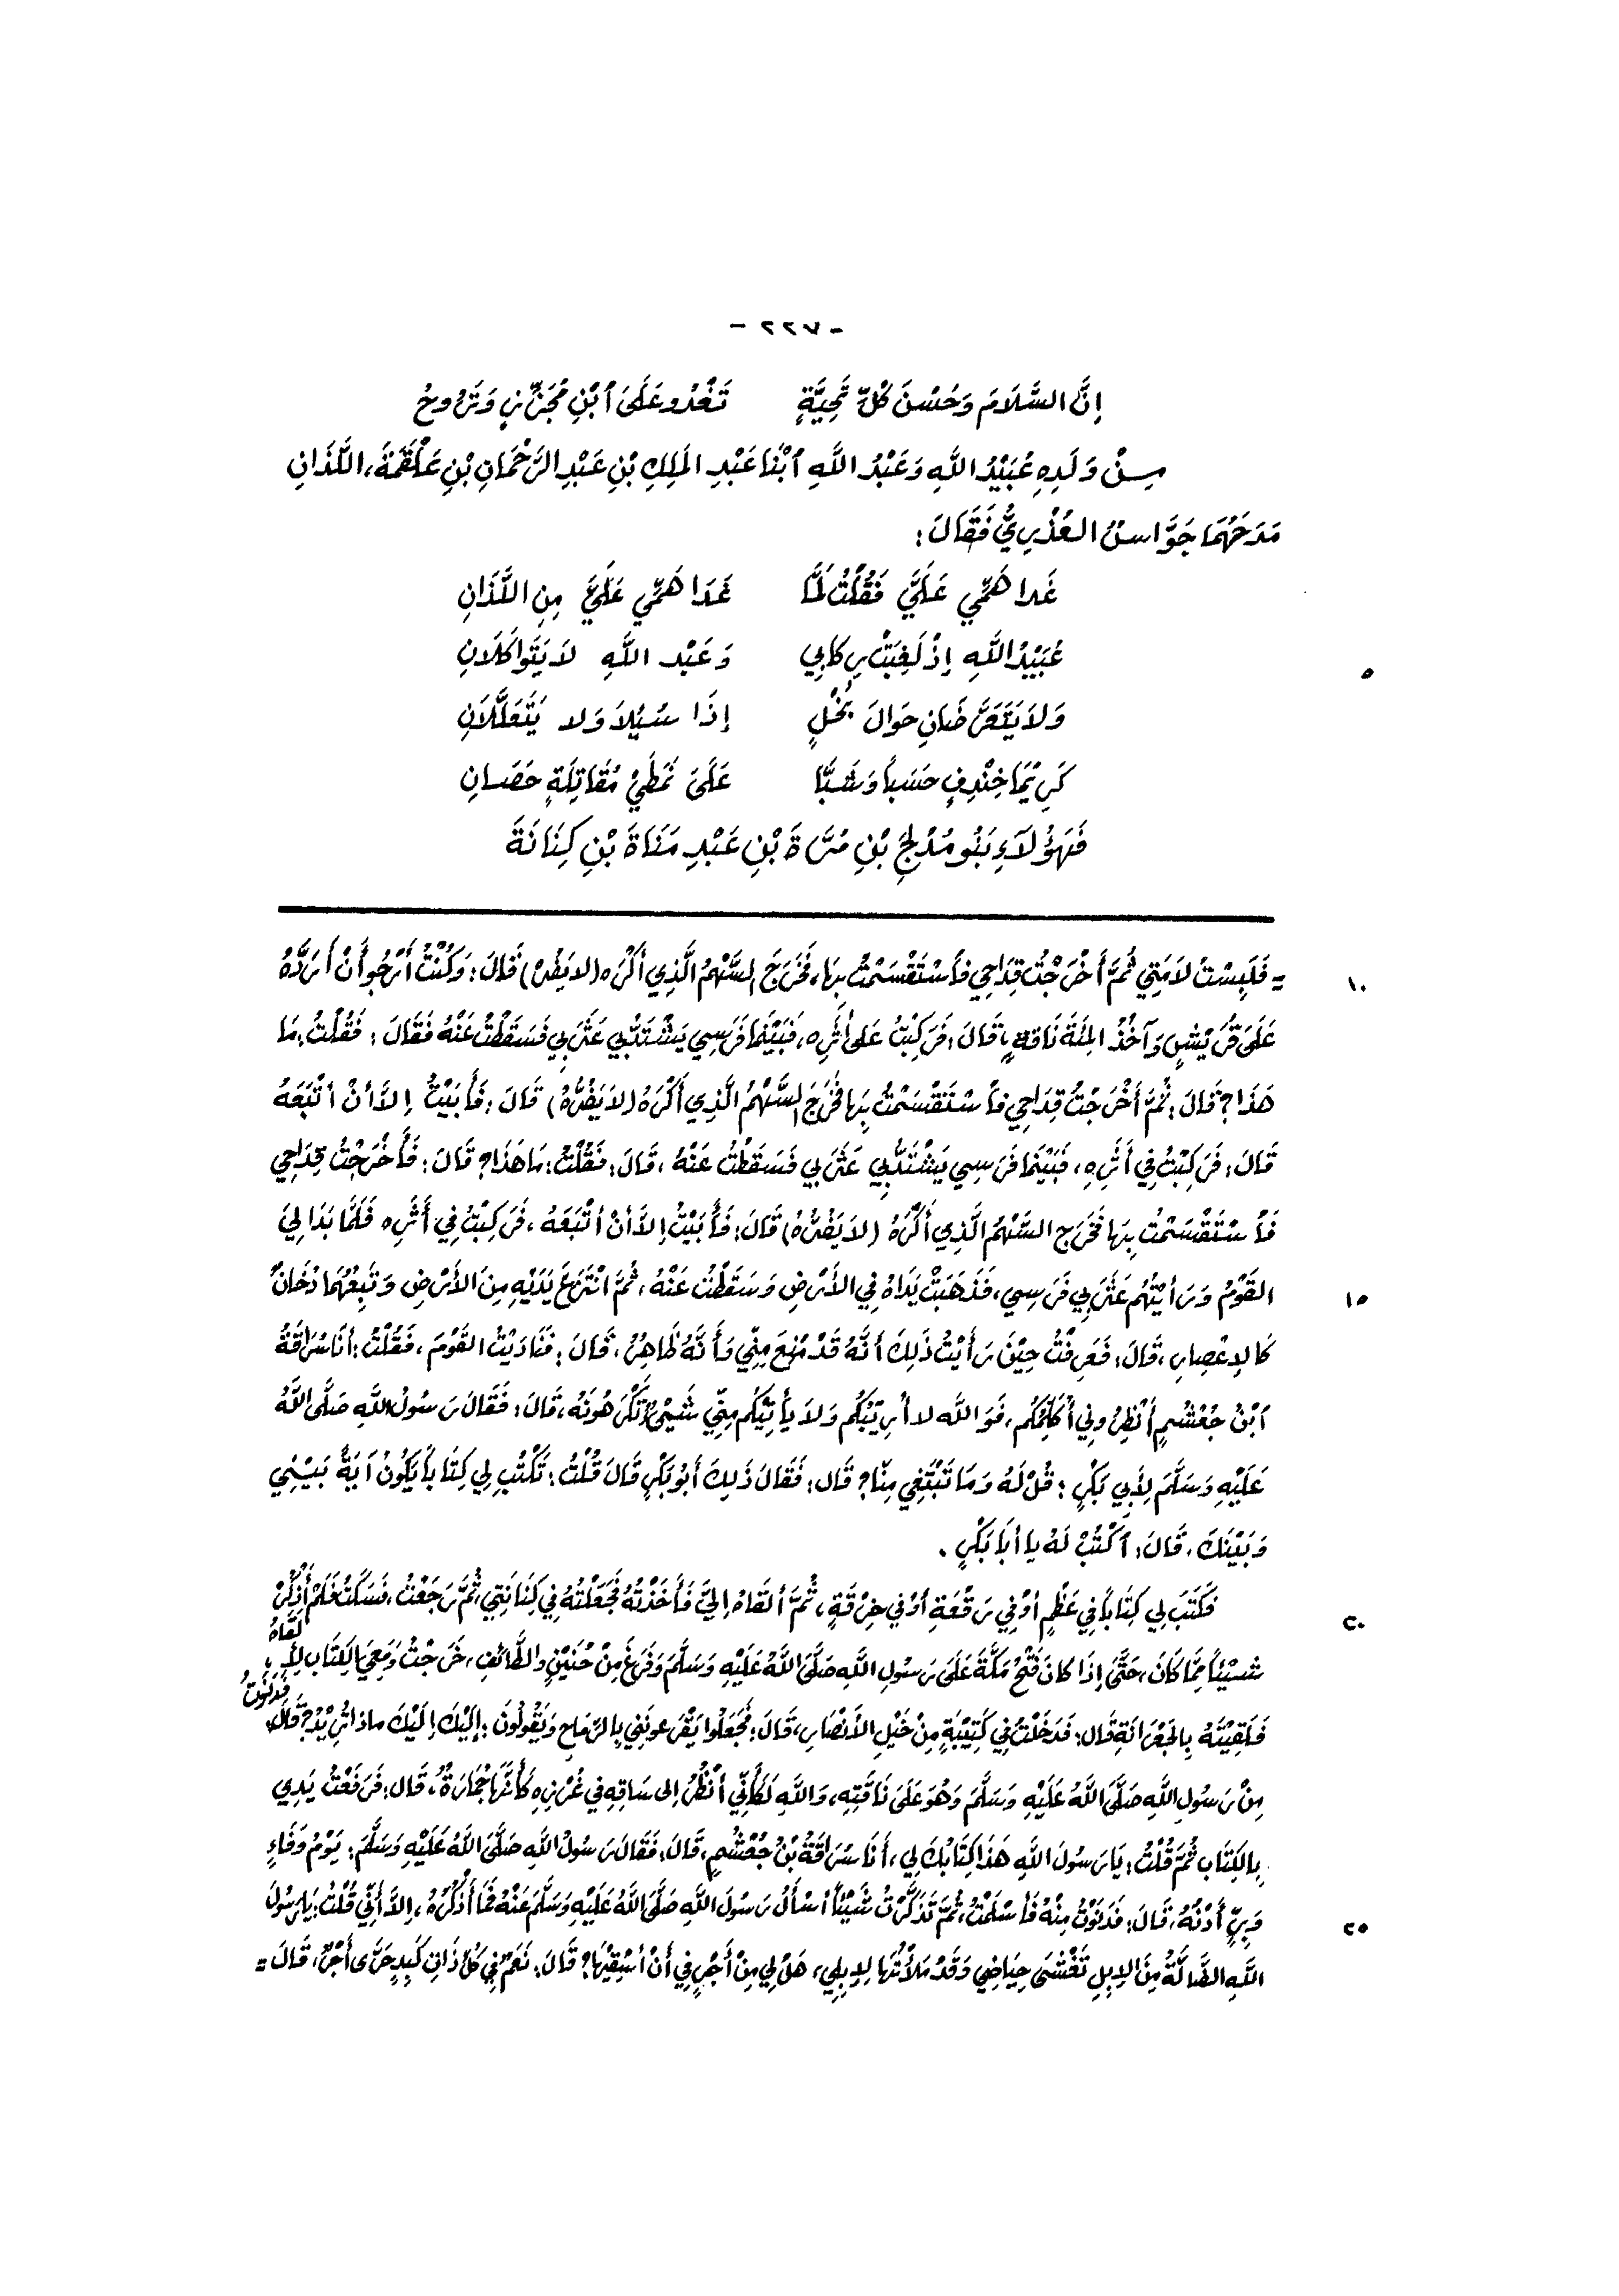 - ٢٢٧ -
إِنَّ السَّلَامَ وَحُسْنَ كُلِّ تَحِيَّةٍ تَغْدُو عَلَىَ ٱبْنِ مُجَزِّزٍ وَتَرُوحُ
مِنْ وَلَدِهِ عُبَيْدُ اللَّهِ وَعَبْدُ اللَّهِ ٱبْنَا عَبْدِ المَلِكِ بْنِ عَبْدِ الرَّحْمَانِ بْنِ عَلْقَمَةَ، اللَّذَانِ
مَدَحَهُمَا جَوَّاسُ العُذْرِيُّ فَقَالَ:
غَدا هَمِّي عَلَيَّ فَقُلْتُ لَمَّا غَدَا هَمِّي عَلَيَّ مِنِ اللَّذَانِ
عُبَيْدُ اللَّهِ إِذْ لَغِبَتْ رِكَابِي وَعَبْدُ اللَّهِ لاَ يَتَوَاكَلاَنِ
٥
وَلاَ يَتَعَرَّضَانِ حَوَالَ بُخْلٍ إِذَا سُئِلاَ وَلا يَتَعَلَّلاَنِ
كَرِيْمَا خِنْدِفٍ حَسَباً وَشَبَّا عَلَىَ نَمَطَيْ مُقَاتِلَةٍ حَصَانِ
فَهَؤُلاَءِ بَنُو مُدْلِجِ بْنِ مُرَّةَ بْنِ عَبْدِ مَنَاةَ بْنِ كِنَانَةَ
= فَلَبِسْتُ لاَمَتِي ثُمَّ أَخْرَجْتُ قِدَاحِي فَٱسْتَقْسَمْتُ بِهَا، فَخَرَجَ السَّهْمُ الَّذِي أَكْرَه (لا يَضُرْ) قَالَ: وَكُنْتُ أَرْجُو أَنْ أَرُدَّهُ
١٠
عَلَىَ قُرَيْشٍ وَآخُذُ المِئَةَ نَاقَةٍ قَالَ: فَرَكِبْتُ عَلَى أَثَرِهِ، فَبَيْنَمَا فَرَسِي يَشْتَدُّ بِي عَثَرَ بِي فَسَقَطْتُ عَنْهُ فَقَالَ: فَقُلْتُ: مَا
هَذَا؟ قَالَ: ثُمَّ أَخْرَجْتُ قِدَاحِي فَٱسْتَقْسَمْتُ بِهَا فَخَرَجَ السَّهْمُ الَّذِي أَكْرَهُ (لاَ يَضُرُّهُ) قَالَ: فَأَبَيْتُ إِلاَّ أَنْ أَتْبَعَهُ
قَالَ: فَرَكِبْتُ فِي أَثَرِهِ، فَبَيْنَمَا فَرَسِي يَشْتَدُّ بِي عَثَرَ بِي فَسَقَطْتُ عَنْهُ، قَالَ: فَقُلْتُ: مَا هَذَا؟ قَالَ: فَأَخْرَجْتُ قِدَاحِي
فَٱسْتَقْسَمْتُ بِهَا فَخَرَجَ السَّهْمُ الَّذِي أَكْرَهُ (لا يَضُرُّهُ) قَالَ: فَأَبَيْتُ إِلاَّ أَنْ أَتْبَعَهُ، فَرَكِبْتُ فِي أَثَرِهِ فَلَمَّا بَدَا لِيَ
القَوْمُ وَرَأَيْتُهُم عَثَرَ بِي فَرَسِي، فَذَهَبَتْ يَدَاهُ فِي الأَرْضِ وَسَقَطْتُ عَنْهُ، ثُمَّ انْتَزَعَ يَدَيْهِ مِنَ الأَرْضِ وَتَبِعَهُمَا دُخَانٌ
١٥
كَالإِعْصَارِ، قَالَ: فَعَرِفْتُ حِيْنَ رَأَيْتُ ذَلِكَ أَنَّهُ قَدْ مُنِعَ مِنِّي وَأَنَّهُ ظَاهِرٌ، قَالَ: فَنَادَيْتُ القَوْمَ، فَقُلْتُ: أَنَا سُرَاقَةُ
ٱبْنُ جُعْشُمٍ أَنْظِرُونِي أُكَلِّمُكُم، فَوَ اللَّهِ لا أُرِيْبُكُم وَلاَ يَأْتِيْكُم مِنِّي شَيْءٌ تَكْرَهُونَهُ، قَالَ: فَقَالَ رَسُولُ اللَّهِ صَلَّى اللَّهُ
عَلَيْهِ وَسَلَّمَ لِأَبِي بَكْرٍ: قُلْ لَهُ وَمَا تَبْتَغِي مِنَّا؟ قَال: فَقَالَ ذَلِكَ أَبُو بَكْرٍ قَالَ قُلْتُ: تَكْتُبِ لِي كِتَاباً يَكُونُ آيَةً بَيْنِي
وَبَيْنَكَ، قَالَ: ٱكْتُبْ لَهُ يا أَبَا بَكْرٍ.
فَكَتَبَ لِي كِتَاباً فِي عَظْمٍ أَوْ فِي رَقْعَةٍ أَوْ فِي خِرْقَةٍ، ثُمَّ أَلقَاهُ إِلَيَّ فَأَخَذْتُهُ فَجَعَلْتُهُ فِي كِنَانَتِي، ثُمَّ رَجَعْتُ، فَسَكَتُّ فَلَمْ أَذْكُرْ
٢٠
شَيْئاً مِمَّا كَانَ، حَتَّى إِذَا كَانَ فَتْحُ مَكَّةَ عَلَىَ رَسُولِ اللَّهِ صَلَّى اللَّهُ عَلَيْهِ وَسَلَّمَ وَفَرَغَ مِنْ حُنَيْنٍ وَالطَّائِفِ، خَرَجْتُ وَمَعِيَ الكِتَاب لِأَلْقَاهُ،
فَلَقِيْتُهُ بِالجِعْرَانَةِ قَال: فَدَخَلْتُ فِي كَتِيْبَةٍ مِنْ خَيْلِ الأَنْصَارِ، قَالَ: فَجَعَلُوا يَقْرَعونَنِي بِالرِّمَاحِ وَيَقُولُونَ: إِلَيْكَ إِلَيْكَ ماذا تُرِيْدُ؟ قَالَ، فَدَنَوْتُ
مِنْ رَسُولِ اللَّهِ صَلَّىَ اللَّهُ عَلَيْهِ وَسَلَّمَ وَهُوَ عَلَىَ نَاقَتِهِ، وَاللَّهِ لَكَأَنِّي أَنْظُرُ إلى سَاقِهِ فِي غُرْزِهِ كَأَنَّهَا جُمَّارَةٌ، قَال: فَرَفَعْتُ يَدِي
بِالكِتَابِ ثُمَّ قُلْتُ: يَا رَسُولَ اللَّهِ هَذَا كِتَابُكَ لِي، أَنَا سُرَاقَةُ بْنُ جُعْشُمٍ، قَالَ: فَقَالَ رَسُولُ اللَّهِ صَلَّى اللَّهُ عَلَيْهِ وَسَلَّمَ: يَوْمُ وَفَاءٍ
وَبِرٍّ أُدْنُهُ، قَالَ: فَدَنَوْتُ مِنْهُ فَأَسْلَمْتُ، ثُمَّ تَذَكَّرْتُ شَيْئاً أَسْأَلُ رَسُولَ اللَّهِ صَلَّىَ اللَّهُ عَلَيْهِ وَسَلَّمَ عَنْهُ فَمَا أَذْكُرُهُ، إِلاَّ أَنِّي قُلْتُ: يَا رَسُولَ
٢٥
اللَّهِ الضَّالَّةُ مِنَ الإِبِلِ تَغْشَى حِيَاضِي وَقَدْ مَلَأْتُهَا لِإِبِلِي، هَلْ لِي مِنْ أَجْرٍ فِي أَنْ أَسْقِيْهَا؟ قَالَ: نَعَمْ فِي كُلِّ ذَاتِ كَبِدٍ حَرَّى أَجْرٌ، قَالَ =